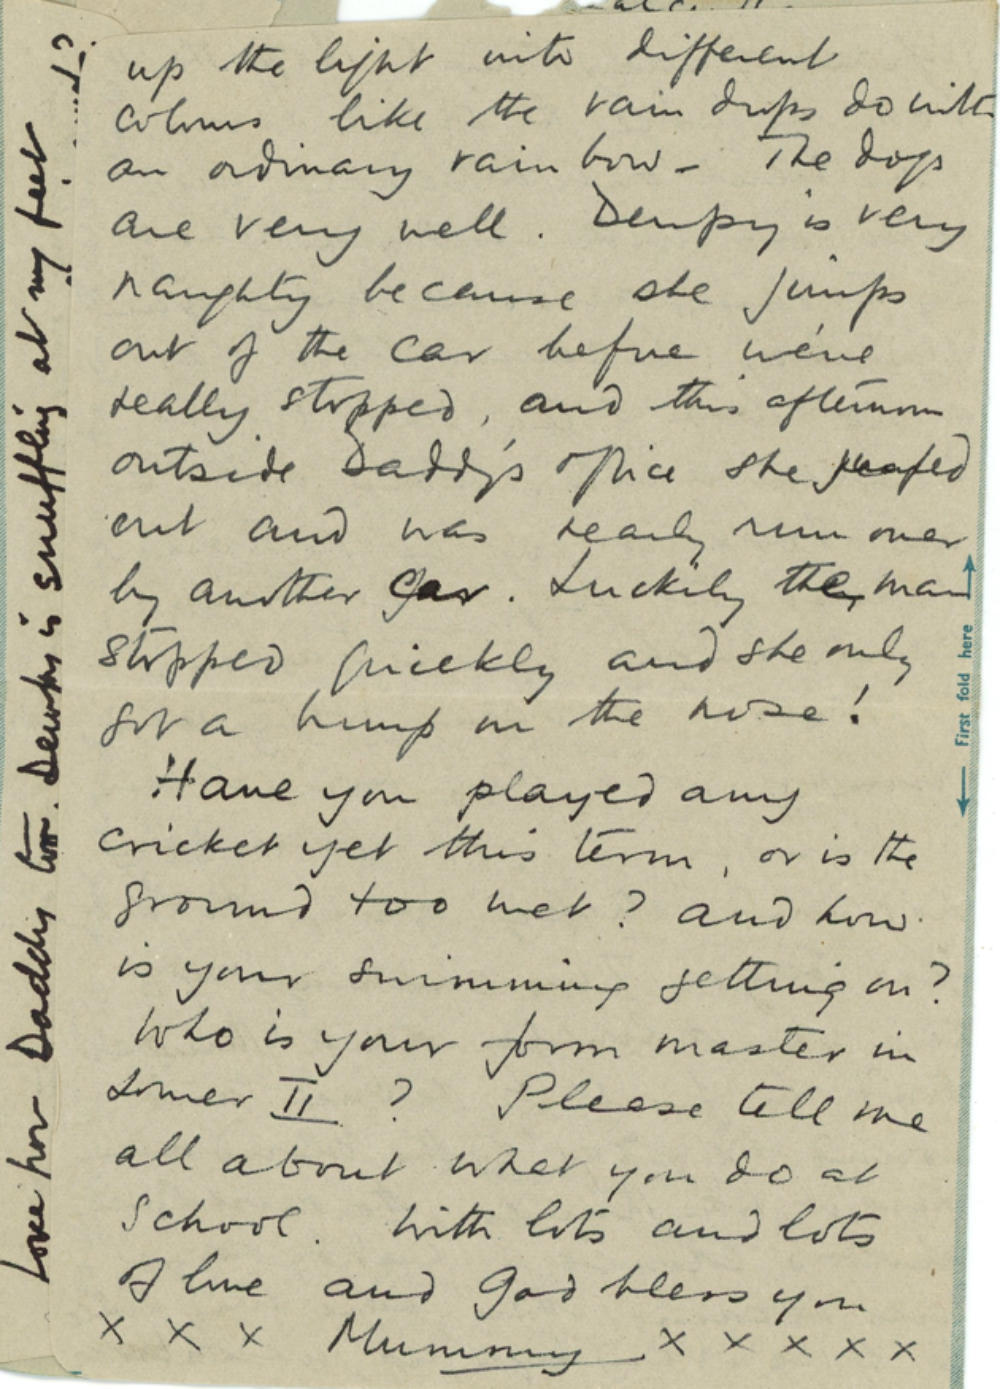 up the light into different
colours like the rain drops do with
an ordinary rainbow - The dogs
are very well. Dewpy is very
naughty because she jumps
out of the car before we're
really stopped, and this afternoon
outside Daddy's office she leaped
out and was nearly run over
by another car. Luckily the man
stopped quickly and she only
got a bump on the nose!
Have you played any
cricket yet this term, or is the
ground too wet? and how
is your swimming getting on?
Who is your form master in
Lower II ? Please tell me
all about what you do at
School. With lots and lots
of love and God bless you
x x x Mummy x x x x x
Love from Daddy too. Dewpy is snuffling at my feet
← First fold here →